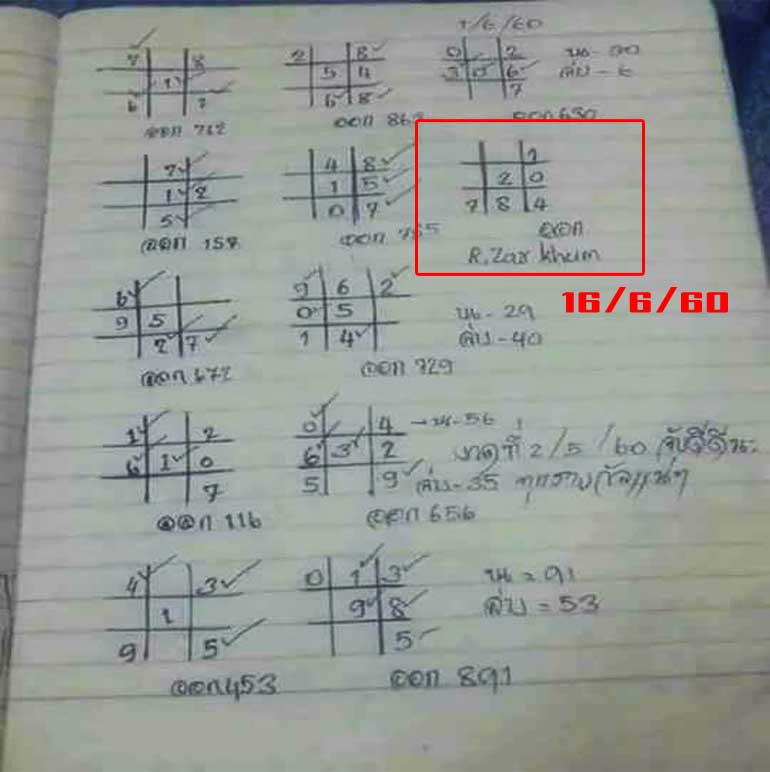 1/6/60
7 8
1
6 7
ออก 762
2 8
5 4
6 8
ออก 862
0 2
3 0 6
7
บน - 30
ล่าง - 6
ออก 630
7
1 2
5
ออก 157
4 8
1 5
0 7
ออก 785
1
2 0
7 8 4
ออก
R.Zar khum
16/6/60
6
9 5
2 7
ออก 672
9 6 2
0 5
1 4
ออก 729
บน - 29
ล่าง - 40
1 2
6 1 0
7
ออก 116
0 4
6 3 2
5 9
ออก 656
บน - 56
งวดที่ 2/5/60
ล่าง - 35
4 3
1
9 5
ออก 453
0 1 3
9 8
5
ออก 891
บน = 91
ล่าง = 53